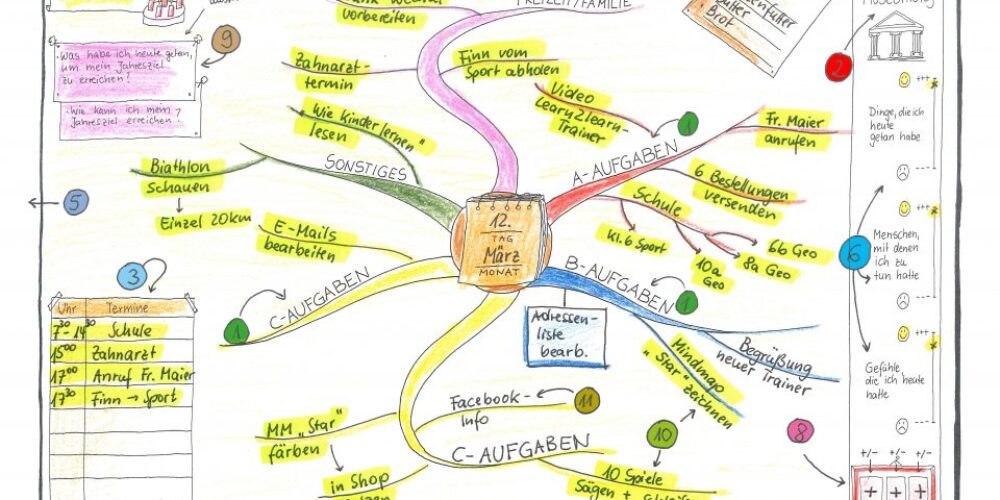 vorbereiten
FREIZEIT/FAMILIE
Brot
9
Was habe ich heute getan,
um mein Jahresziel
zu erreichen?
Wie kann ich mein
Jahresziel erreichen?
Zahnarzt-
termin
Finn vom
Sport abholen
"Wie Kinder lernen"
lesen
SONSTIGES
Biathlon
schauen
Einzel 20km
5
Video
Learn2learn-
Trainer
1
A-AUFGABEN
Fr. Maier
anrufen
6 Bestellungen
versenden
Schule
Kl. 6 Sport
10a
Geo
8a Geo
6b Geo
2
+++
Dinge, die ich
heute
getan habe
---
+++
6
Menschen,
mit denen
ich zu
tun hatte
---
+++
Gefühle
die ich heute
hatte
---
+/- +/- +/-
+ + +
8
12.
TAG
März
MONAT
E-Mails
bearbeiten
1
C-AUFGABEN
3
Uhr Termine
7³⁰- 14³⁰ Schule
15⁰⁰ Zahnarzt
17⁰⁰ Anruf Fr. Maier
17³⁰ Finn → Sport
B-AUFGABEN
1
Adressen-
liste
bearb.
Mindmap
"Star" zeichnen
Begrüßung
neuer Trainer
10
Facebook-
Info
11
MM "Star"
färben
in Shop
C-AUFGABEN
10 Spiele
Sägen +